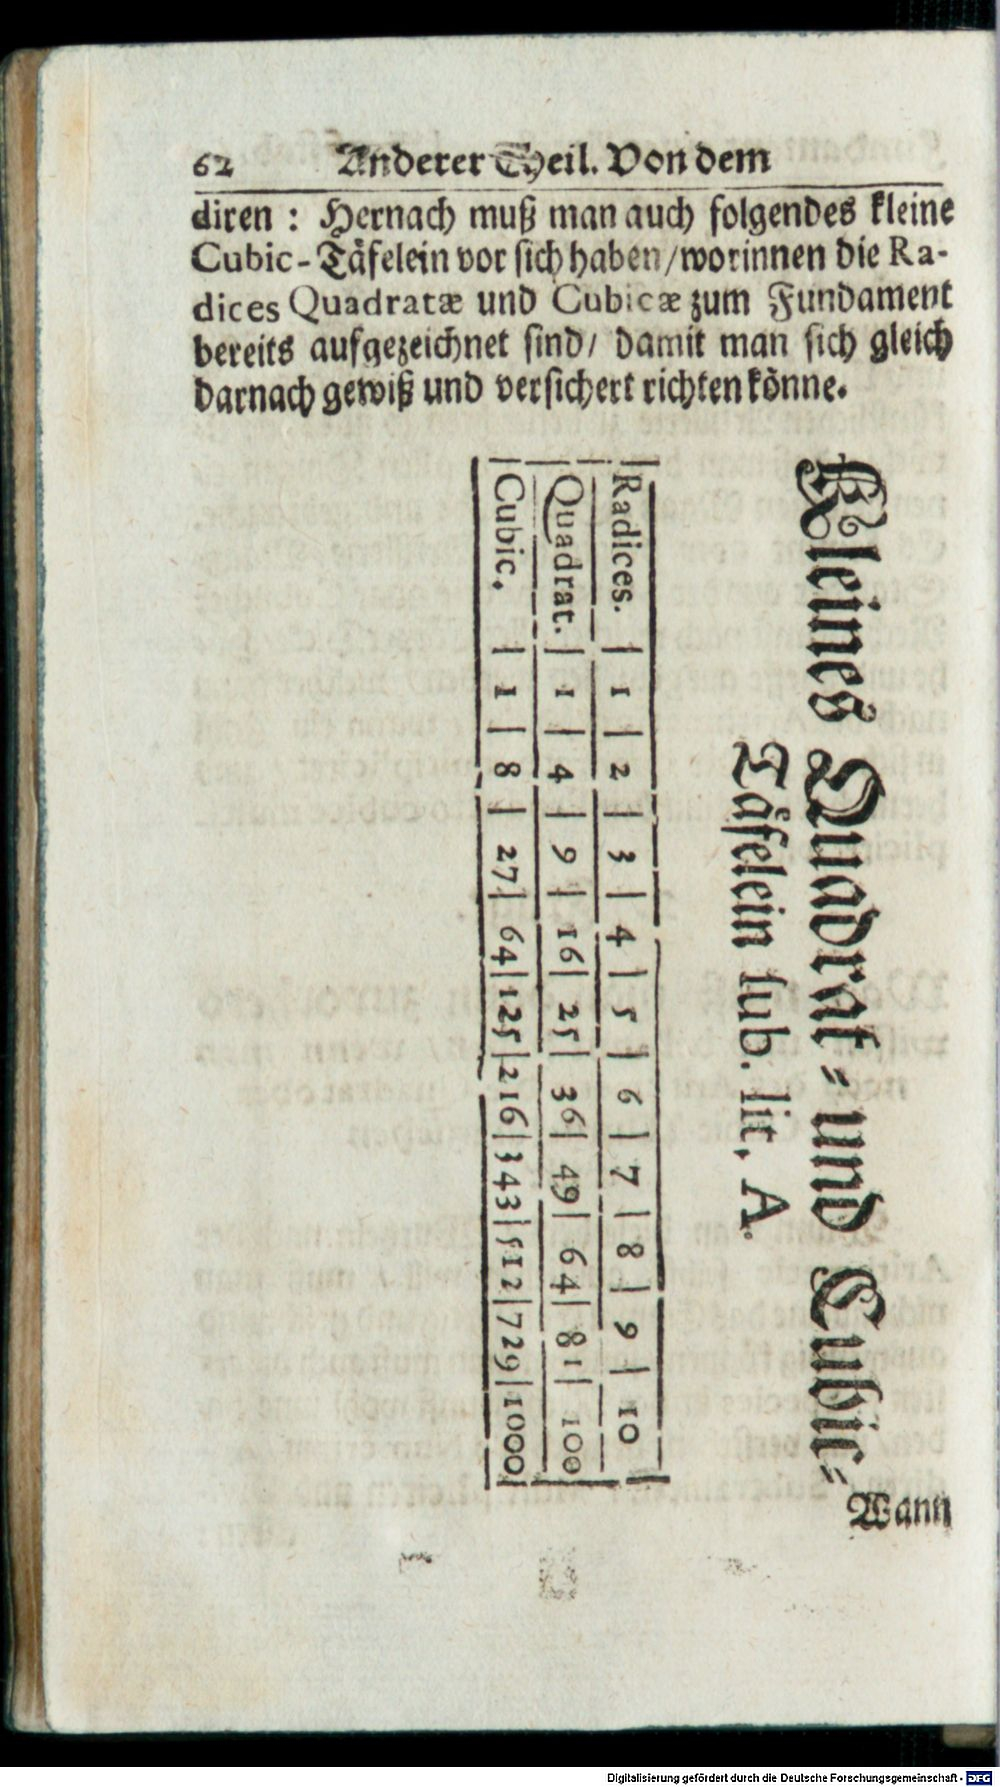 62 Anderer Theil. Von dem
diren : Hernach muß man auch folgendes kleine
Cubic-Täfelein vor sich haben/worinnen die Ra-
dices Quadratæ und Cubicæ zum Fundament
bereits aufgezeichnet sind/ damit man sich gleich
darnach gewiß und versichert richten könne.
Kleines Quadrat- und Cubic-
Täfelein sub. lit. A.
Radices. | 1 | 2 | 3 | 4 | 5 | 6 | 7 | 8 | 9 | 10
Quadrat. | 1 | 4 | 9 | 16 | 25 | 36 | 49 | 64 | 81 | 100
Cubic. | 1 | 8 | 27 | 64 | 125 | 216 | 343 | 512 | 729 | 1000
Wann
Digitalisierung gefördert durch die Deutsche Forschungsgemeinschaft - DFG